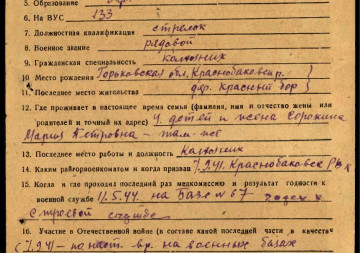 5. Образование
6. На ВУС 133
7. Должностная квалификация стрелок
8. Военное звание рядовой
9. Гражданская специальность колхозник
10 Место рождения Горьковская обл. Краснобаковск р.
11. Последнее место жительства дер. Красный бор
12. Где проживает в настоящее время семья (фамилия, имя и отчество жены или
родителей и точный их адрес) 4 детей и жена Сорокина
Мария Петровна - там-же
13. Последнее место работы и должность Колхозник
14. Каким райгорвоенкоматом и когда призван 7.9.41. Краснобаковск РВК
15. Когда и где проходил последний раз медкомиссию и результат годности к
военной службе 11.5.44. на Базе №67 годен к
строевой службе
16. Участие в Отечественной войне (в составе какой последней части и качестве
с 7.9.41 - по наст. вр. на военных базах